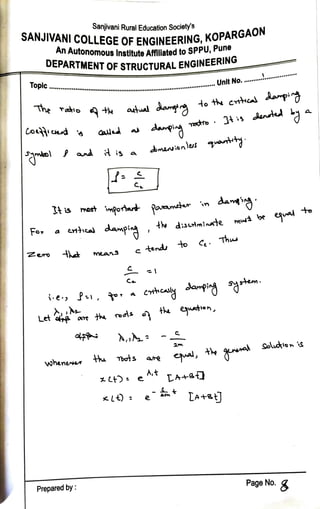 Sanjivani Rural Education Society's
SANJIVANI COLLEGE OF ENGINEERING, KOPARGAON
An Autonomous Institute Affiliated to SPPU, Pune
DEPARTMENT OF STRUCTURAL ENGINEERING
Topic Unit No. 1
The ratio of the actual damping to the critical damping
Coefficient is called as damping ratio. It is denoted by a
symbol ρ and it is a dimensionless quantity.
ρ = c / Cc
It is most important parameter in damping.
For a critical damping, the discriminate must be equal to
zero that means c tends to Cc. Thus
c / Cc = 1
i.e., ρ=1, for a critically damping system.
Let λ₁, λ₂ are the roots of the equation,
λ₁, λ₂ = - c / 2m
whenever the roots are equal, the general solution is
x(t) = e^λ₁t [A+Bt]
x(t) = e^-c/2m t [A+Bt]
Prepared by : Page No. 8